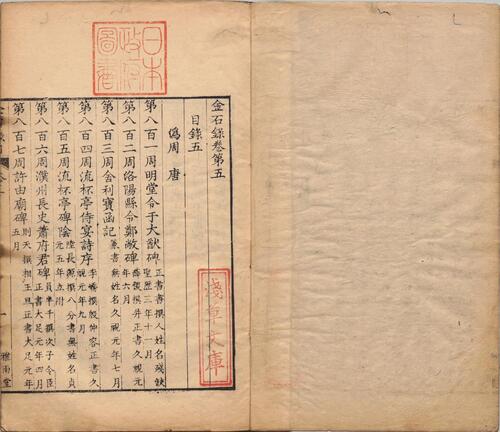 金石錄卷第五
目錄五
偽周 唐
第八百一周明堂令于大猷碑 正書書撰人姓名殘缺聖歷三年十一月
第八百二周洛陽縣令鄭敞碑 薛稷撰并正書久視元年六月
第八百三周舍利寶函記 篆書無姓名久視元年七月
第八百四周流杯亭侍宴詩序 李嶠撰殷仲容正書久視元年九月
第八百五周流杯亭碑陰 陸長源撰八分書無姓名貞元五年立附
第八百六周濮州長史蕭府君碑 次子令臣正書大足元年四月
第八百七周許由廟碑 則天撰相王旦正書大足元年五月
一
雅雨堂
日本政府圖書
淺草文庫